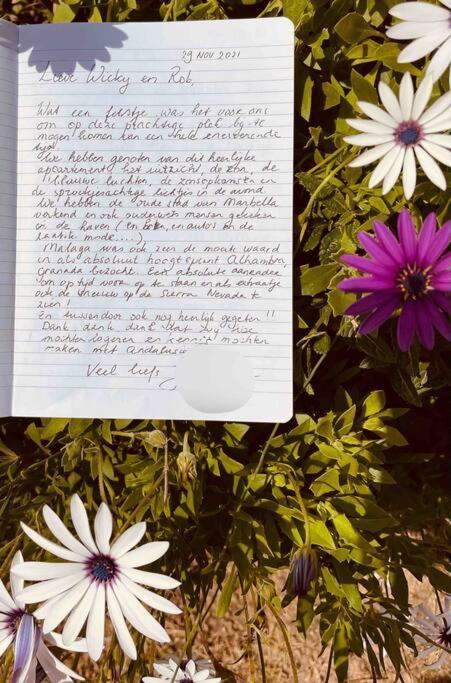 29 NOV 2021
Lieve Wicky en Rob,
Wat een feestje was het voor ons
om op deze prachtige plek bij te
mogen komen van een heel enerverende
tijd!
We hebben genoten van dit heerlijke
appartement, het uitzicht, de zon, de
blauwe luchten, de zonsopkomsten en
de sprookjesachtige lichtjes in de avond.
We hebben de oude stad van Marbella
verkend en ook ouderwets mensen gekeken
in de haven (en boten, en auto's en de
laatste mode....)
Malaga was ook zeer de moeite waard
en als absoluut hoogtepunt Alhambra,
Granada bezocht. Een absolute aanrader
om op tijd voor op te staan en als extraatje
ook de sneeuw op de Sierra Nevada te
zien!
En tussendoor ook nog heerlijk gegeten!!
Dank dank dank dat wij hier
mochten logeren en kennis mochten
maken met Andalusië
Veel liefs